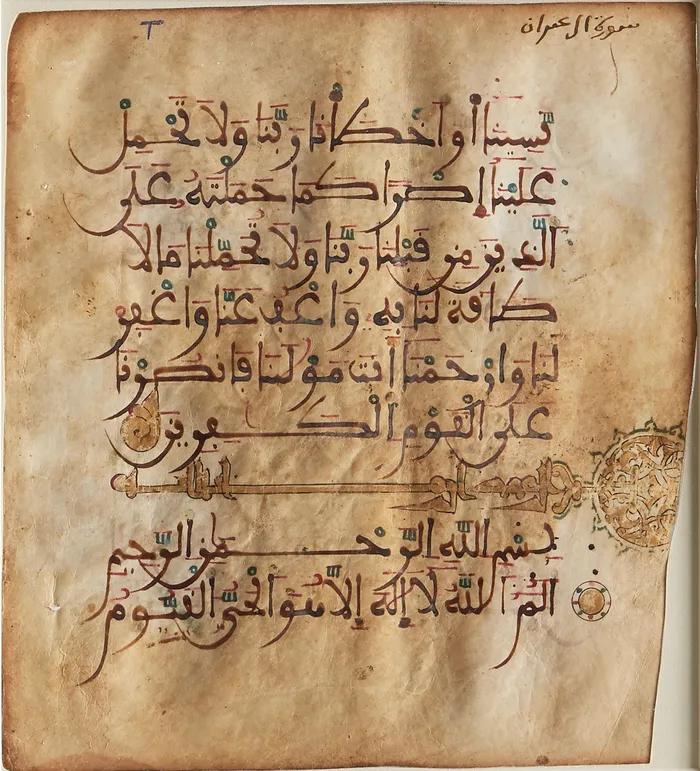 سورة ال عمران
نَسِينَا أَوَ اخْطَأْنَا رَبَّنَا وَلَا تَحْمِلْ
عَلَيْنَا إِصْرًا كَمَا حَمَلْتَهُ عَلَى
الَّذِينَ مِن قَبْلِنَا رَبَّنَا وَلَا تُحَمِّلْنَا مَا لَا
طَاقَةَ لَنَا بِهِ وَاعْفُ عَنَّا وَاغْفِرْ
لَنَا وَارْحَمْنَا أَنتَ مَوْلَىنَا فَانصُرْنَا
عَلَى الْقَوْمِ الْكَفِرِينَ
بِسْمِ اللَّهِ الرَّحْمَنِ الرَّحِيمِ
الَمِّ اللَّهُ لَا إِلَهَ إِلَّا هُوَ الْحَيُّ الْقَيُّومُ